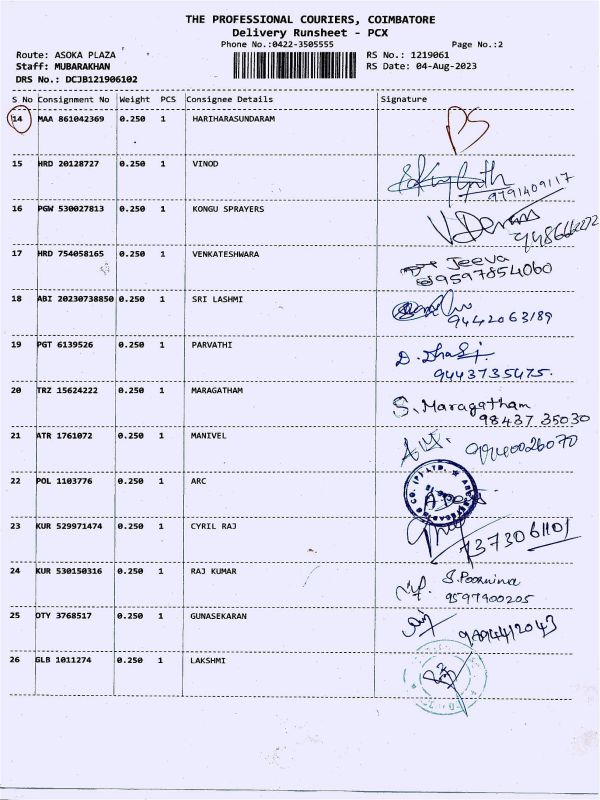 THE PROFESSIONAL COURIERS, COIMBATORE
Delivery Runsheet - PCX
Phone No.:0422-3505555 Page No.:2
Route: ASOKA PLAZA RS No.: 1219061
Staff: MUBARAKHAN RS Date: 04-Aug-2023
DRS No.: DCJB121906102
S No Consignment No Weight PCS Consignee Details Signature
14 MAA 861042369 0.250 1 HARIHARASUNDARAM
15 HRD 20128727 0.250 1 VINOD
9791409117
16 PGW 530027813 0.250 1 KONGU SPRAYERS
17 HRD 754058165 0.250 1 VENKATESHWARA Jeeva
9597854060
18 ABI 20230738850 0.250 1 SRI LASHMI
9442063189
19 PGT 6139526 0.250 1 PARVATHI
9443735475.
20 TRZ 15624222 0.250 1 MARAGATHAM S. Maragatham
98437 35030
21 ATR 1761072 0.250 1 MANIVEL
22 POL 1103776 0.250 1 ARC
CO. (P) LTD.
23 KUR 529971474 0.250 1 CYRIL RAJ
7373061101
24 KUR 530150316 0.250 1 RAJ KUMAR S. Poornima
9597900205
25 OTY 3768517 0.250 1 GUNASEKARAN
26 GLB 1011274 0.250 1 LAKSHMI